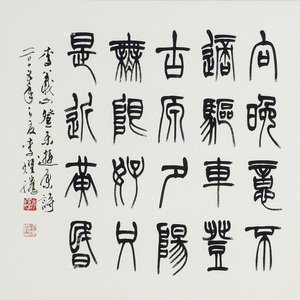 向晚意不
適驅車登
古原夕陽
無限好只
是近黄昏
李義山登樂遊原詩